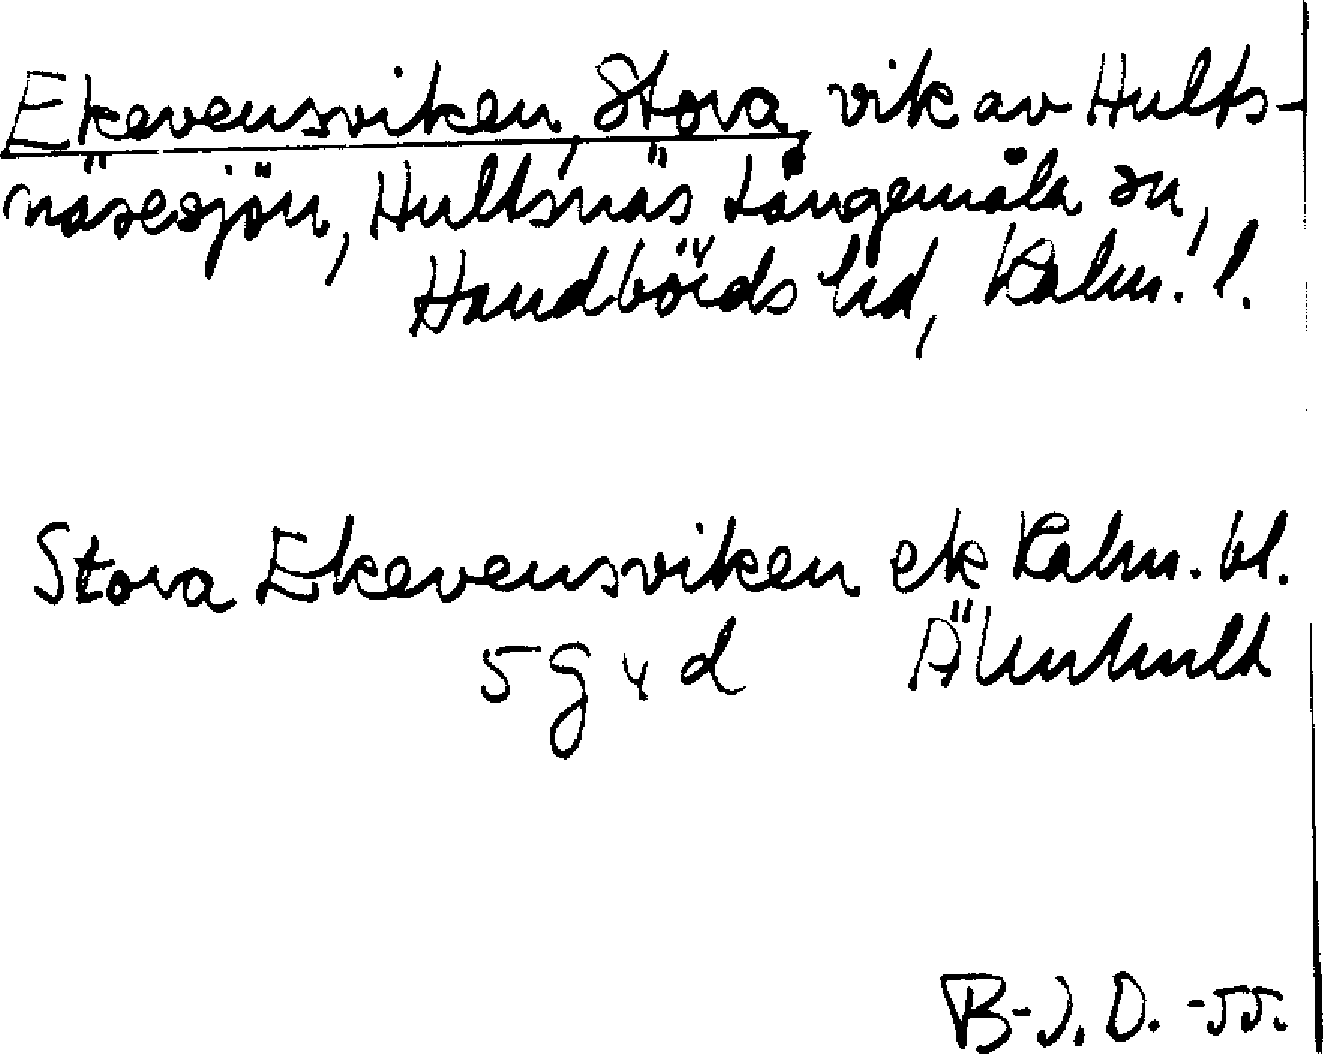 Ekevensviken, Stora, vik av Hults-
näsesjön, Hultsnäs Långemåla sn,
Handbörds hd, Kalm. l.
Stora Ekevensviken ek Kalm. bl.
5 g y d Älmhult
B-J. D. -55.